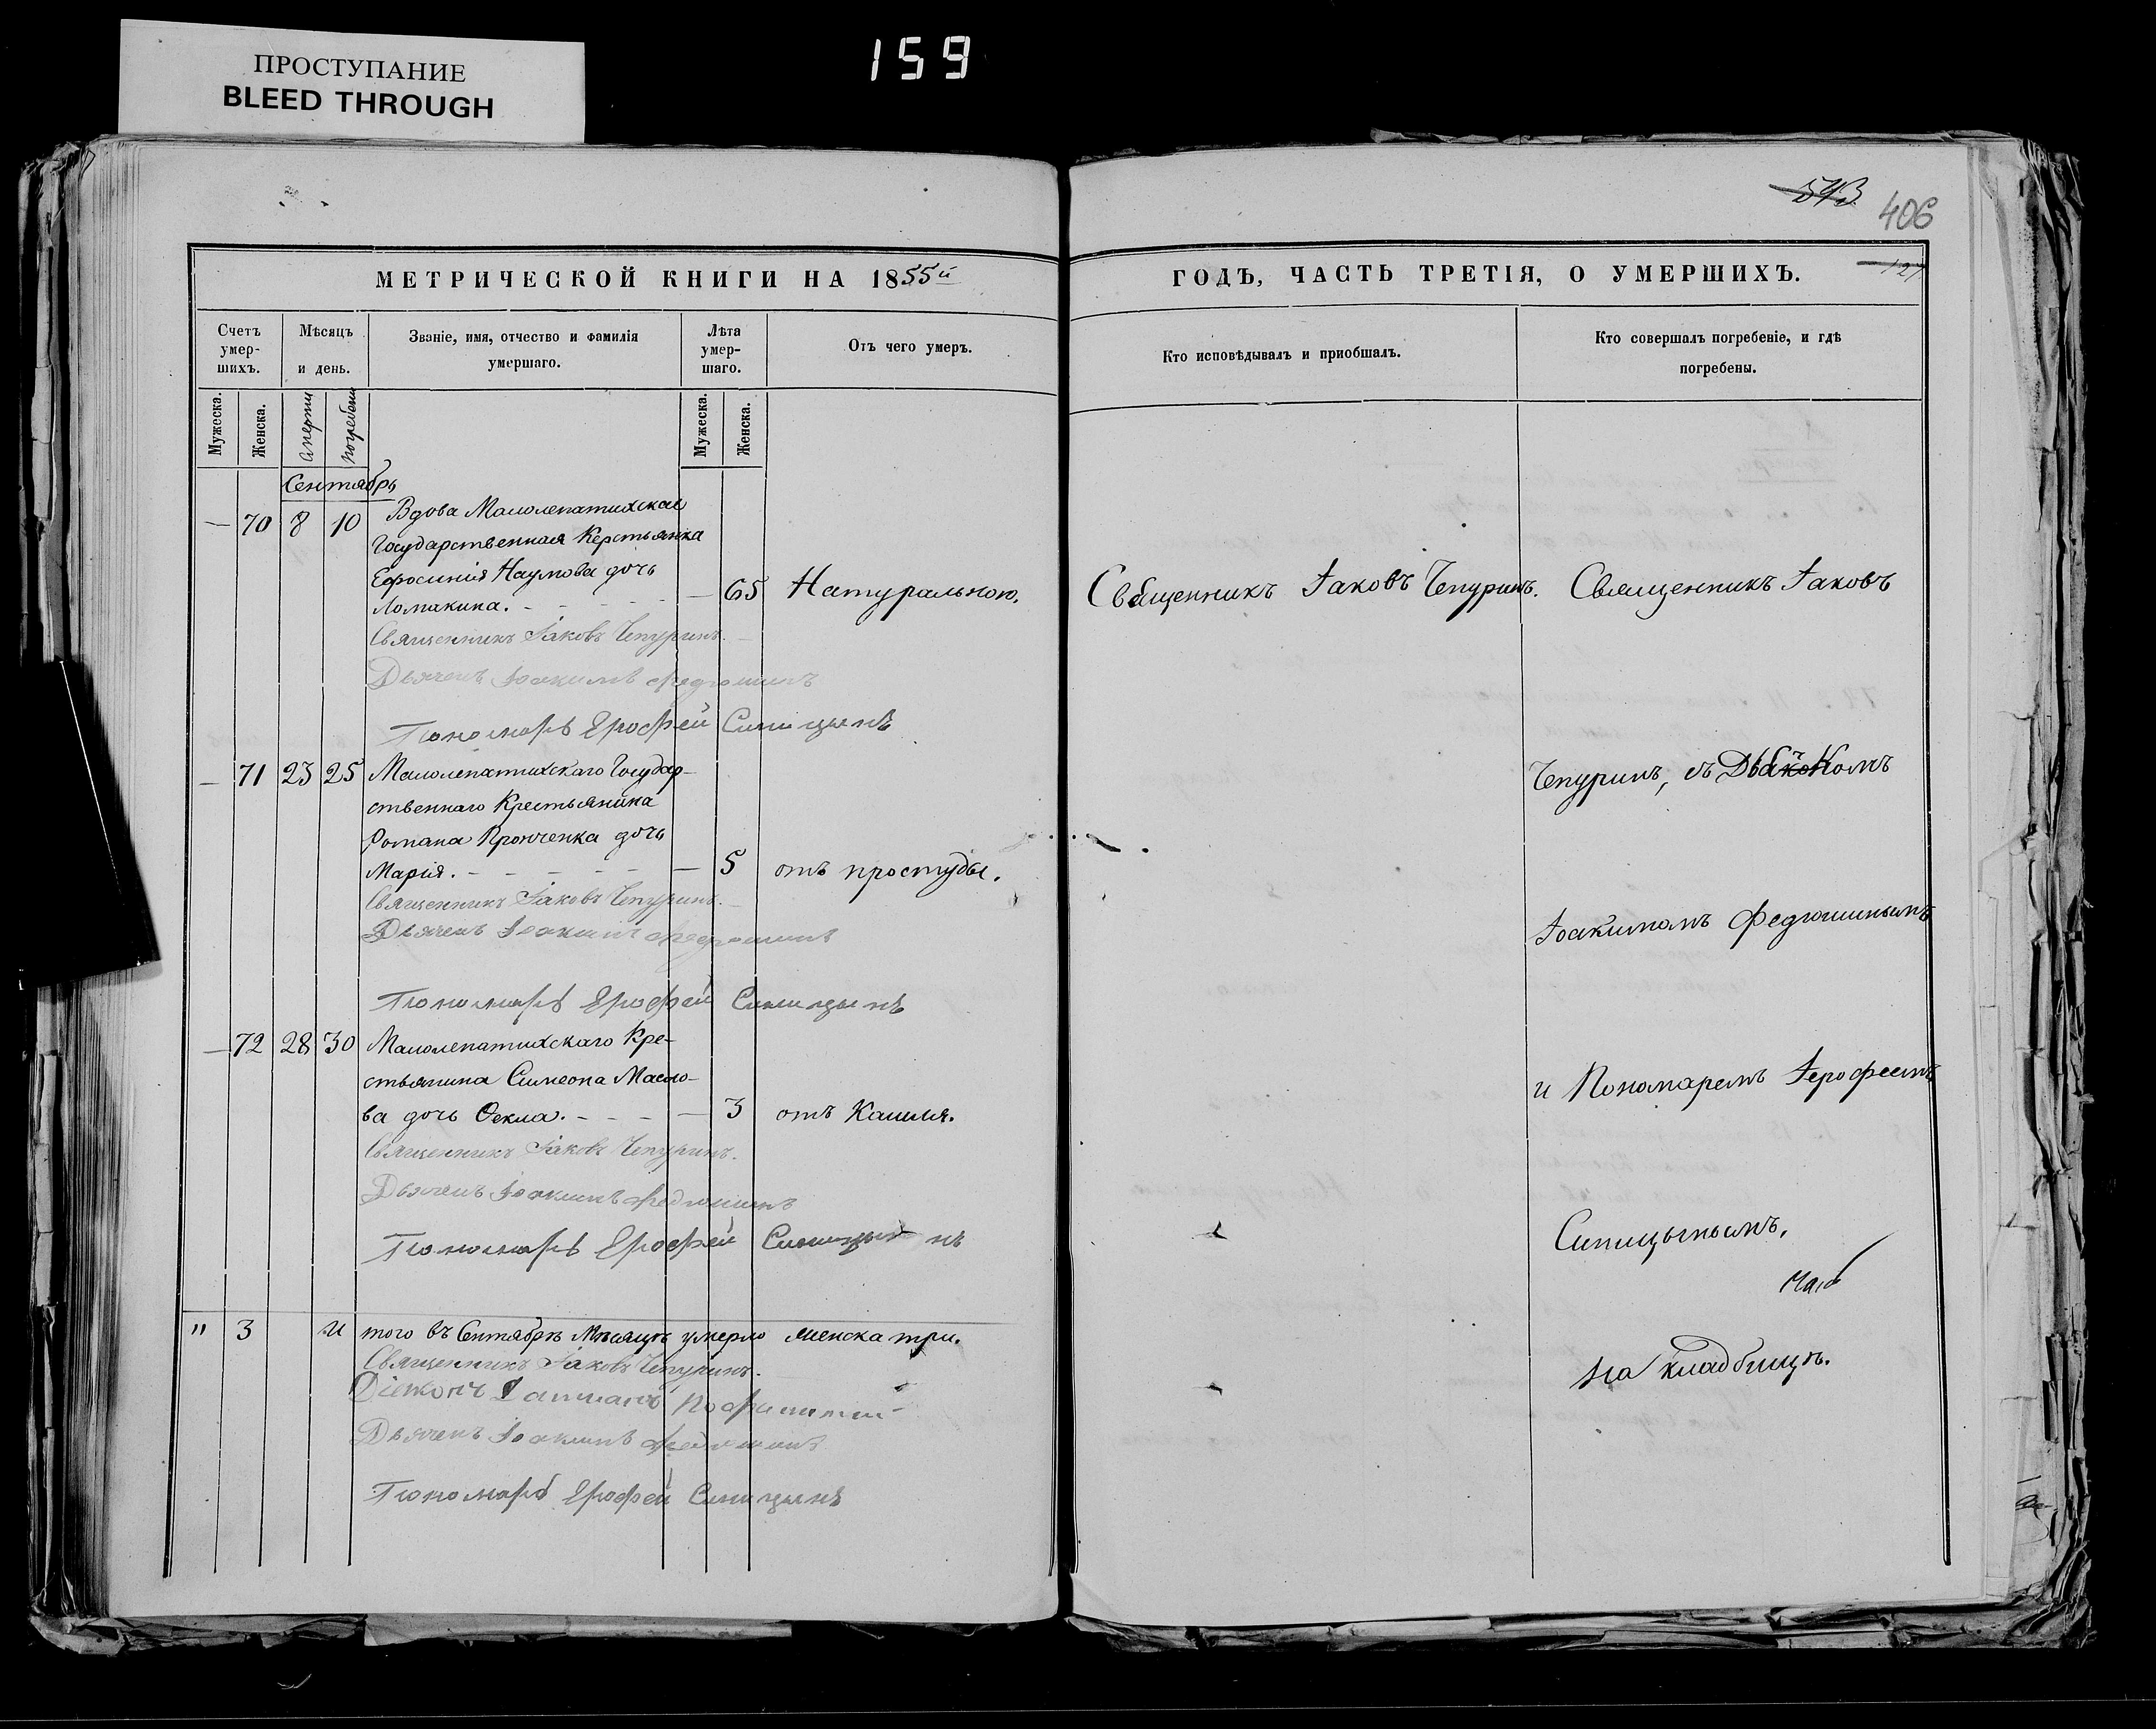 ПРОСТУПАНИЕ
BLEED THROUGH
159
406
МЕТРИЧЕСКОЙ КНИГИ НА 1855й
Счетъ умер-шихъ.
Мѣсяцъ и день.
Званіе, имя, отчество и фамилія умершаго.
Лѣта умер-шаго.
Отъ чего умеръ.
Мужеска.
Женска.
Смерти
погребени
Мужеска.
Женска.
Сентябрь
— 70 8 10 Вдова Малолепатихская
Государственная Керстьянка
Ефросинія Наумова дочь
Ломакина. — 65 Натуральною.
Священникъ Іаковъ Чепуринъ.
Дьячекъ Іоакимъ Федюшинъ
Пономарь Ерофей Синицынъ
— 71 23 25 Малолепатихскаго Государ-
ственнаго Крестьянина
Романа Пронченка дочь
Марія. — 5 отъ простуды.
Священникъ Іаковъ Чепуринъ.
Дьячекъ Іоакимъ Федюшинъ
Пономарь Ерофей Синицынъ
— 72 28 30 Малолепатихскаго Кре-
стьянина Симеона Масло-
ва дочь Ѳекла. — 3 отъ Кашля.
Священникъ Іаковъ Чепуринъ.
Дьячекъ Іоакимъ Федюшинъ
Пономарь Ерофей Синицынъ
" 3 И того въ Сентябрѣ Мѣсяцѣ умерло женска три.
Священникъ Іаковъ Чепуринъ.
Діяконъ
Дьячекъ Іоакимъ Федюшинъ
Пономарь Ерофей Синицынъ
ГОДЪ, ЧАСТЬ ТРЕТІЯ, О УМЕРШИХЪ.
127
Кто исповѣдывалъ и пріобщалъ.
Кто совершалъ погребеніе, и гдѣ погребены.
Священникъ Іаковъ Чепуринъ.
Священникъ Іаковъ
Чепуринъ, съ
Іоакимомъ Федюшинымъ
и Пономаремъ Іерофеемъ
Синицынымъ,
на кладбищѣ.